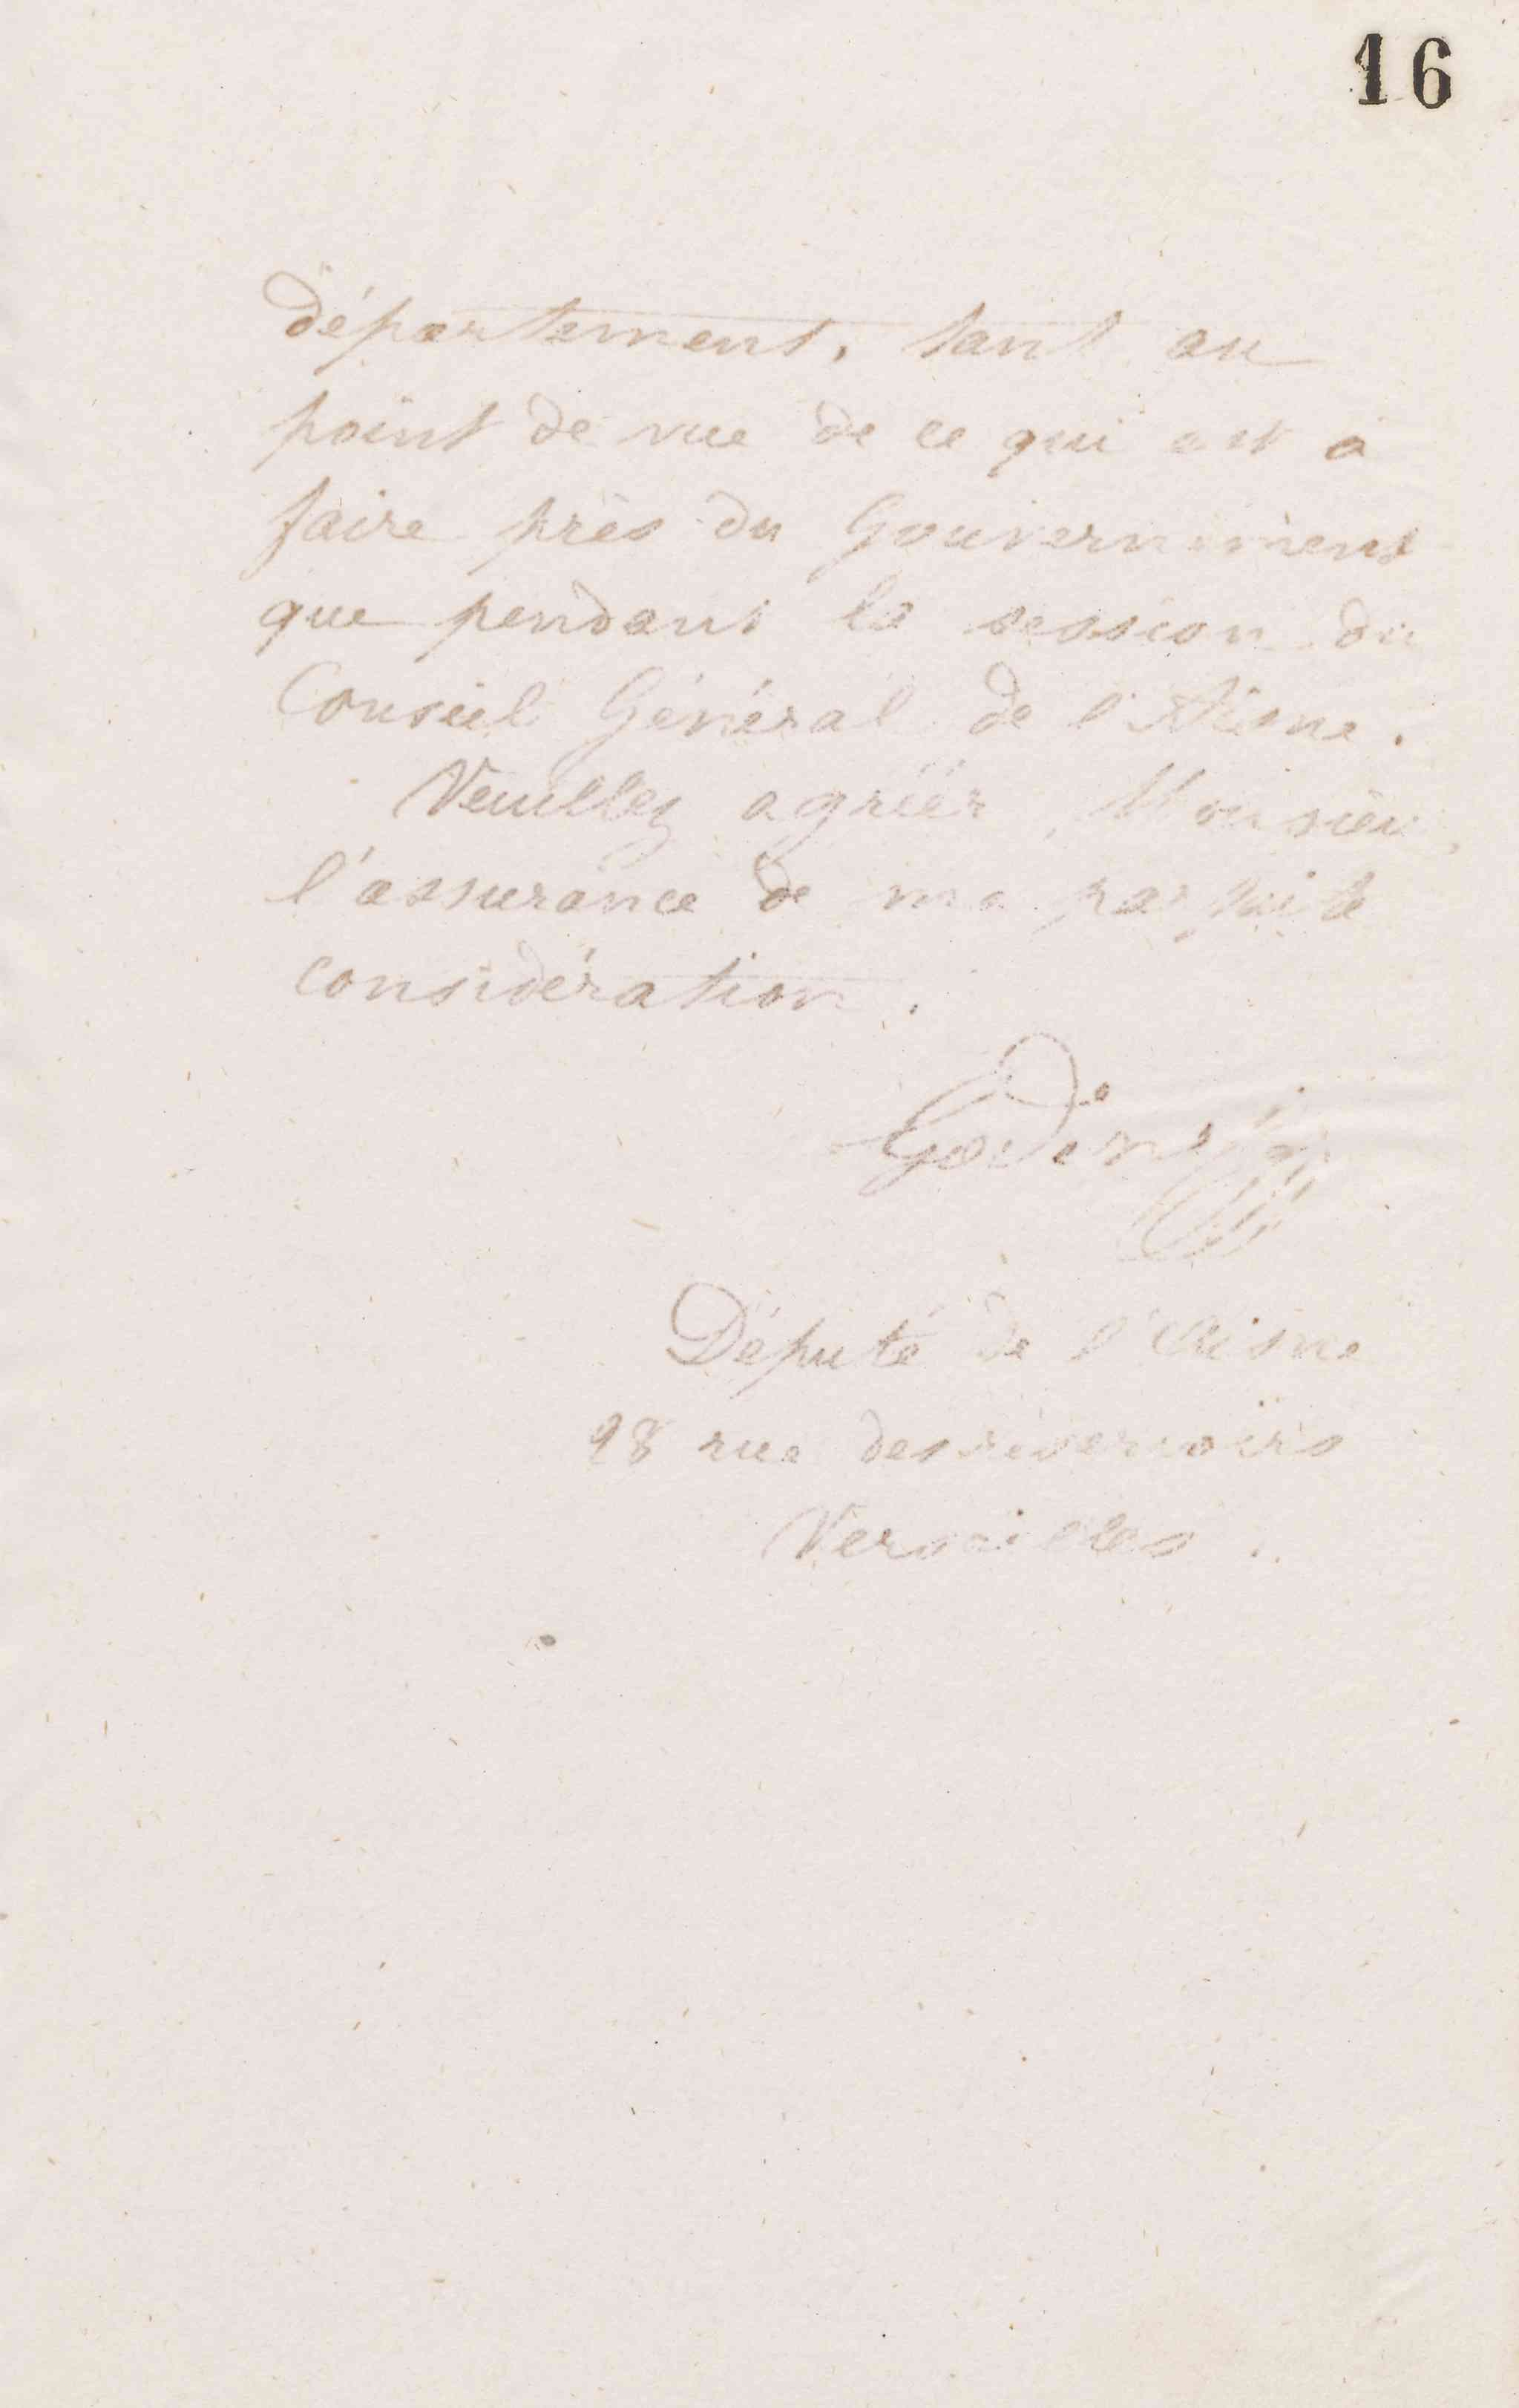 16
département, tant au
point de vue de ce qui est à
faire près du Gouvernement
que pendant la session du
Conseil Général de l'Aisne.
Veuillez agréer, Monsieur,
l'assurance de ma parfaite
considération.
Godin
Député de l'Aisne
28 rue des réservoirs
Versailles.